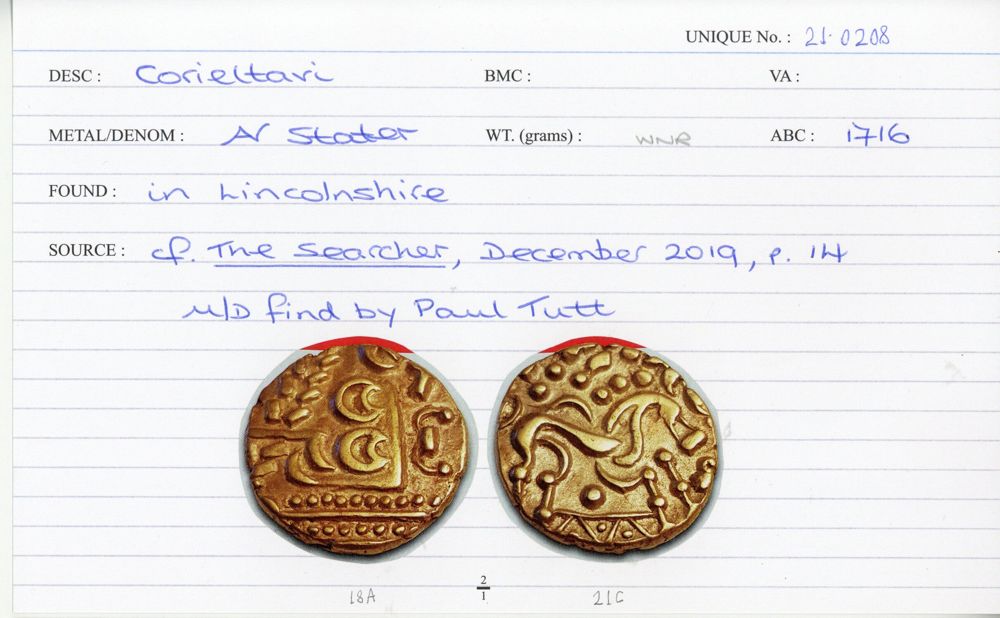 UNIQUE No. : 21.0208
DESC : Corieltavi BMC : VA :
METAL/DENOM : AV Stater WT. (grams) : WNR ABC : 1716
FOUND : in Lincolnshire
SOURCE : cf. The Searcher, December 2019, p. 14
M/D find by Paul Tutt
2
18A 1 21C